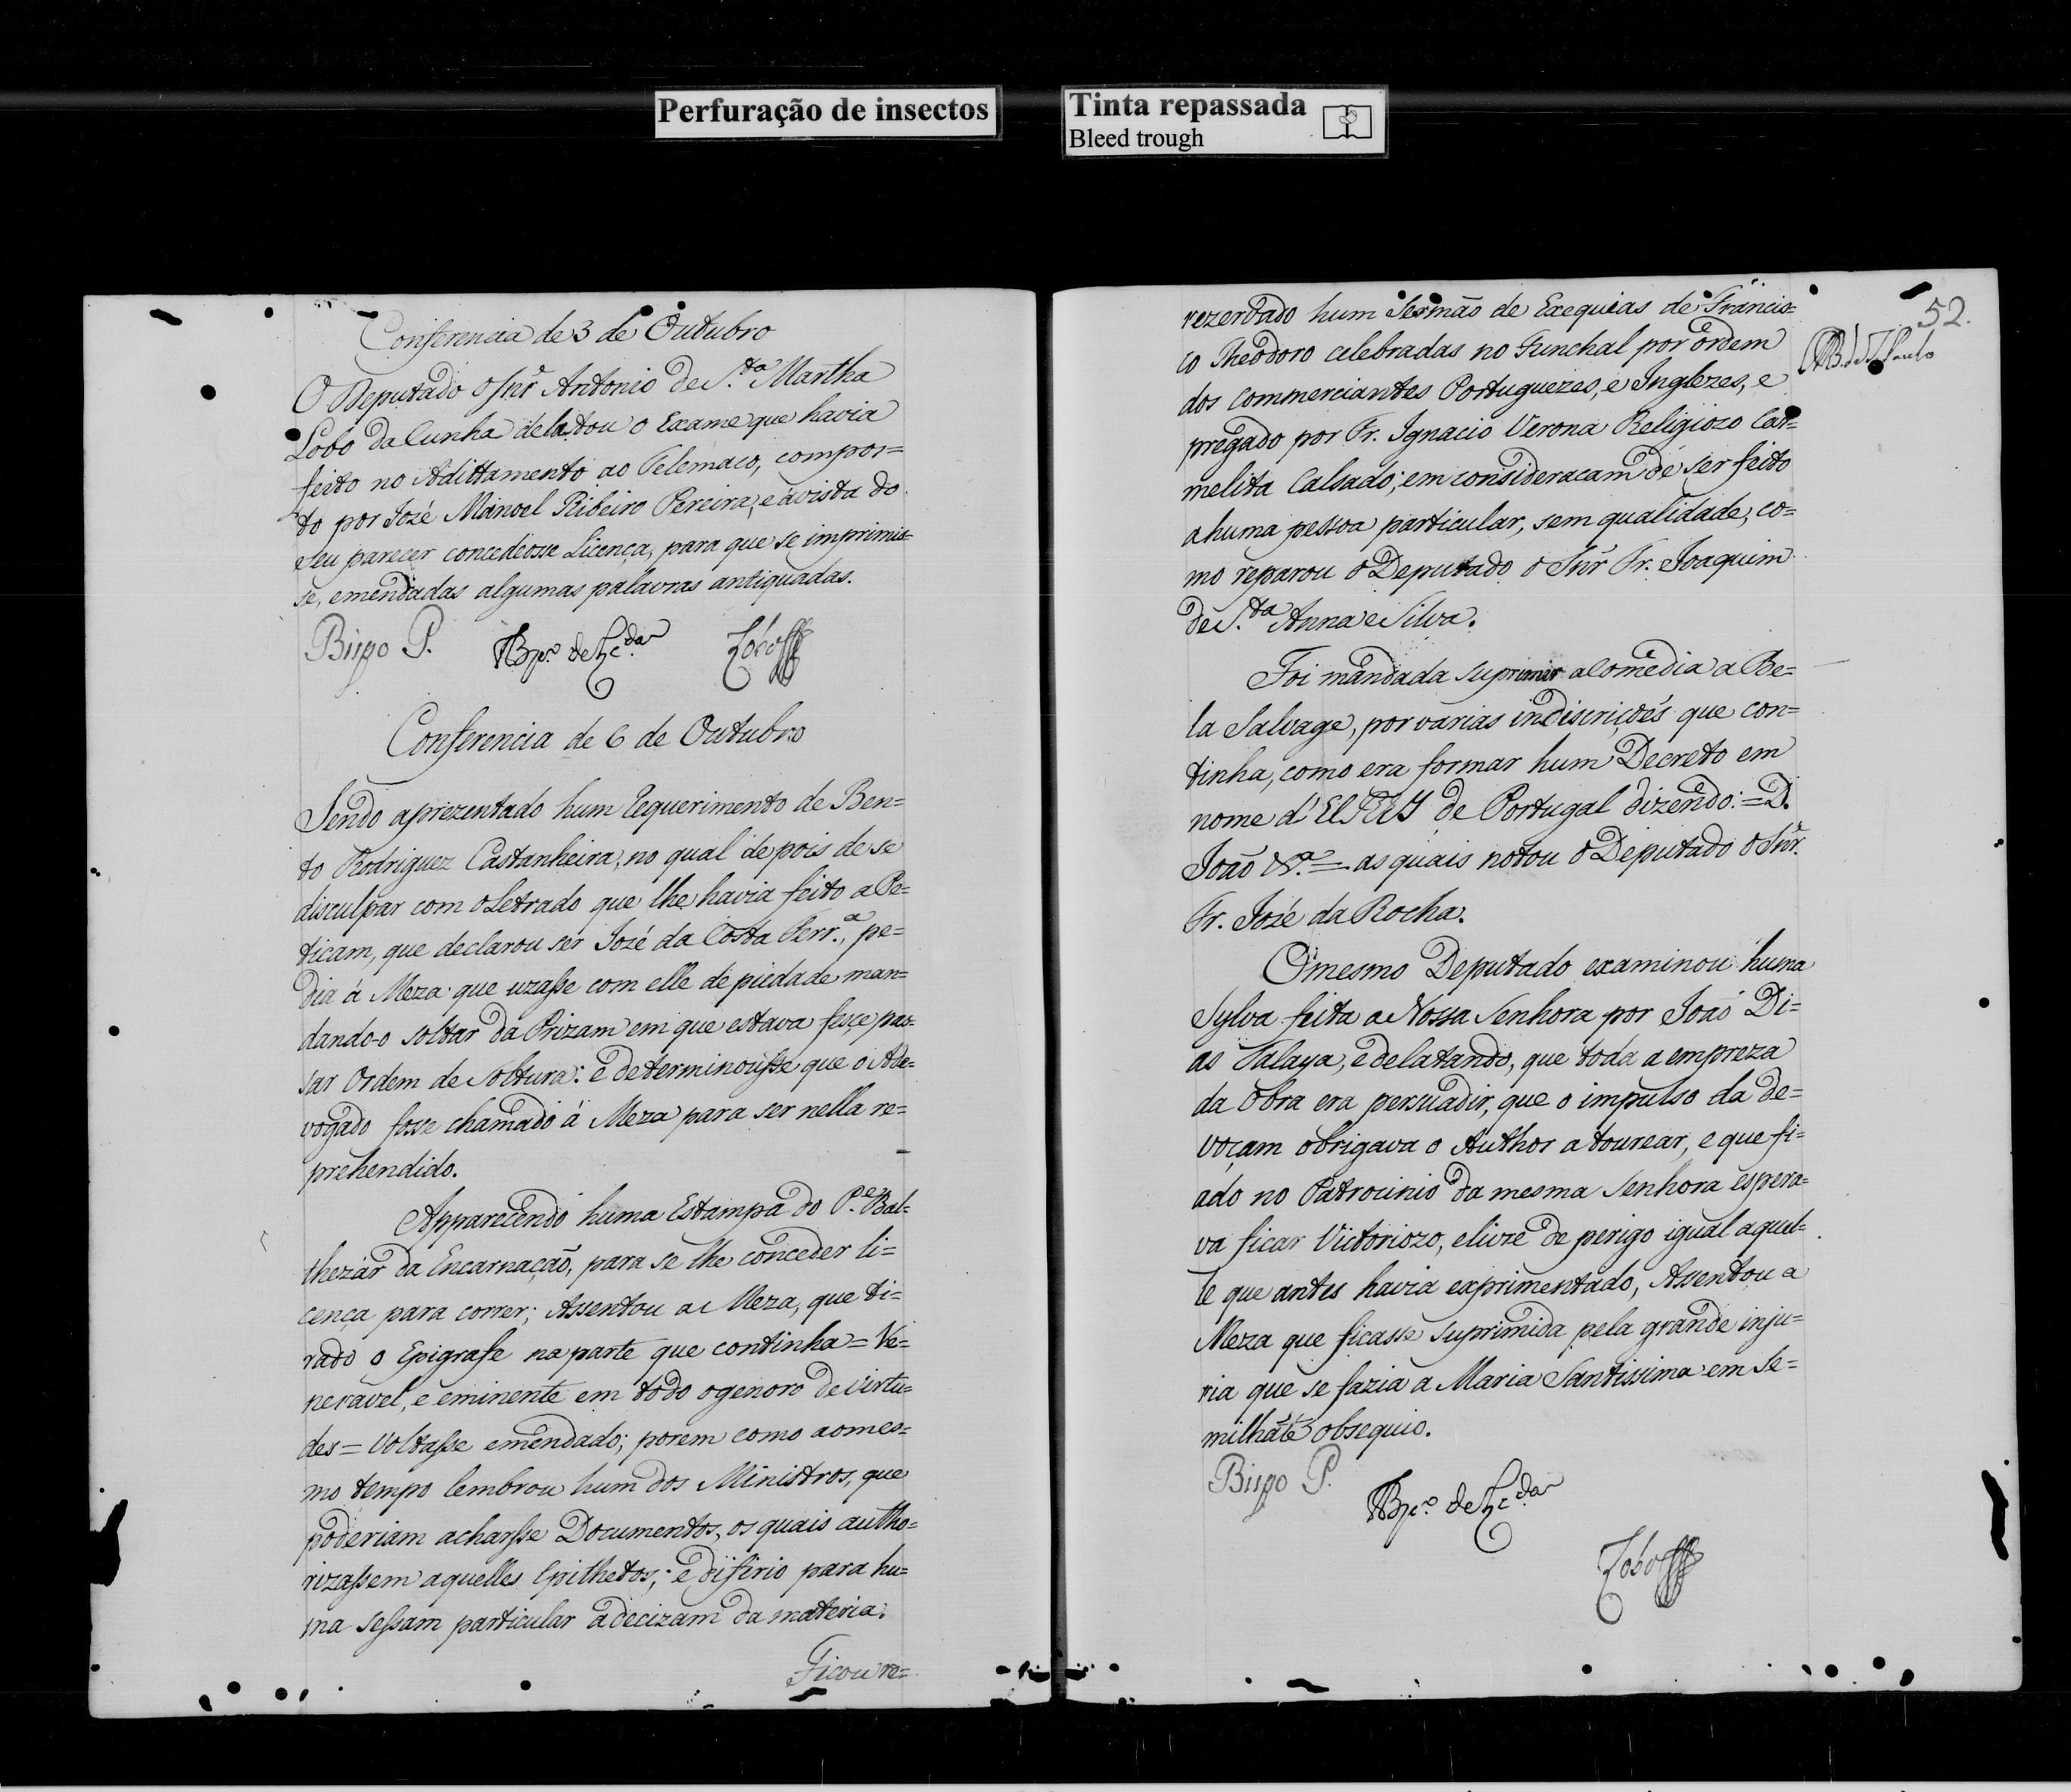 Perfuração de insectos
Tinta repassada
Bleed trough
Conferencia de 3 de Outubro
O Deputado o Snr̃ Antonio de S.ta Martha
Lobo da Cunha delatou o Exame que havia
feito no Adittamento ao Telemaco, compos=
to por Jozé Manoel Ribeiro Pereira, e á vista do
seu parecer concedeosse Licença, para que se imprimis=
se, emendadas algumas palavras antiquadas.
Bispo P.
Conferencia de 6 de Outubro
Sendo aprezentado hum Requerimento de Ben=
to Rodriguez Castanheira, no qual depois de se
disculpar com o Letrado que lhe havia feito a Pe=
ticam, que declarou ser Jozé da Costa Ferr.a, pe=
dia á Meza que uzasse com elle de piedade man=
dando-o soltar da Prizam em que estava fesçe pas=
sar Ordem de Soltura: e determinousse que o Ade=
vogado fosse chamado á Meza para ser nella re=
prehendido.
Apparecendo huma Estampa do P.e Bal=
thezar da Encarnação, para se lhe conceder li=
cença para correr; Assentou a Meza, que ti=
rado o Epigrafe na parte que continha = Ve=
neravel, e eminente em todo o genoro de virtu=
des = Voltasse emendado; porem como ao mes=
mo tempo lembrou hum dos Ministros, que
poderiam acharsse Documentos, os quais autho=
rizassem aquelles Epithetos; e difirio para hu=
ma sessam particular a decizam da materia.
Ficou re=
52.
rezervado hum Sermão de Exequias de Francis=
co Theodoro celebradas no Funchal por ordem
dos Commerciantes Portuguezes, e Inglezes, e
pregado por Fr. Ignacio Verona Religiozo Car=
melita Calsado; em consideracam de ser feito
a huma pessoa particular, sem qualidade, co=
mo reparou o Deputado o Snr̃ Fr. Joaquim
de S.ta Anna e Silva.
Foi mandada suprimir a Comedia a Be=
la Salvage, por varias indiscriçoẽs que con=
tinha, como era formar hum Decreto em
nome d'El REY de Portugal dizendo: = D.
João &.a = as quais notou o Deputado o Snr̃
Fr. Jozé da Rocha.
O mesmo Deputado examinou huma
Sylva feita a Nossa Senhora por João Di=
as Talaya, e delatando, que toda a empreza
da Obra era persuadir, que o impulso da de=
voçam obrigava o Author a tourear, e que fi=
ado no Patrocinio da mesma Senhora espera=
va ficar Victoriozo, e livre de perigo igual aquel=
le que antes havia exprimentado, Assentou a
Meza que ficasse suprimida pela grande inju=
ria que se fazia a Maria Santissima em se=
milhãte obsequio.
Bispo P.